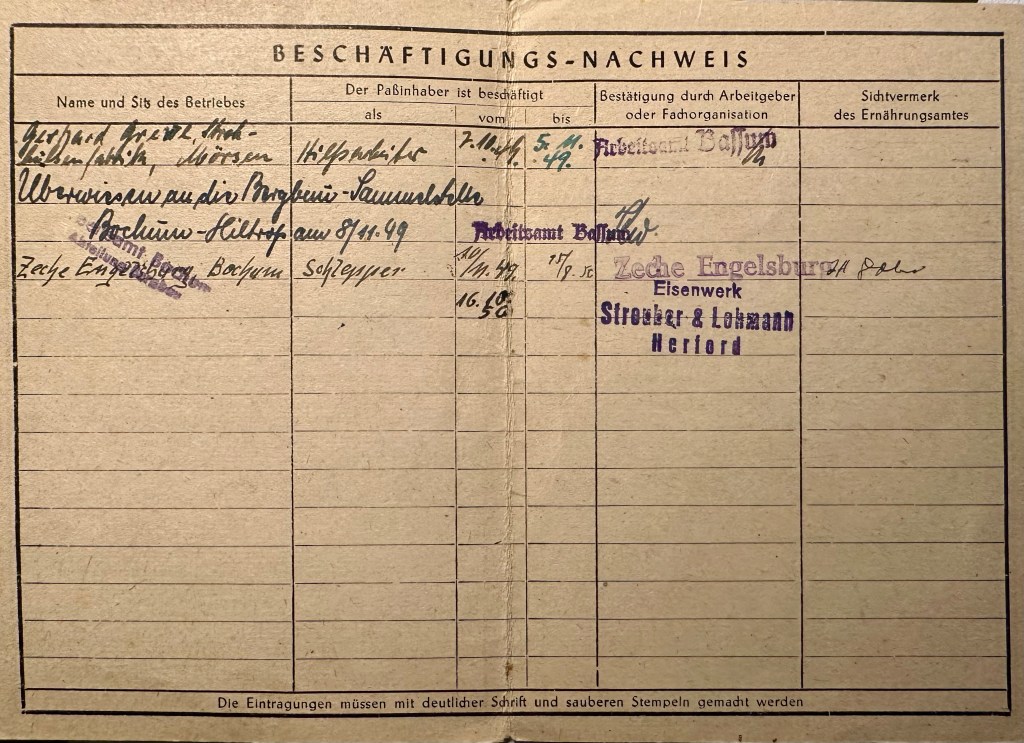 BESCHÄFTIGUNGS-NACHWEIS
Name und Sitz des Betriebes
Der Paßinhaber ist beschäftigt
als
vom
bis
Bestätigung durch Arbeitgeber
oder Fachorganisation
Sichtvermerk
des Ernährungsamtes
Gerhard Stroh-
hülsenfabrik, Mörsen Hilfsarbeiter 7.10.49. 5.11.49. Arbeitsamt Bassum
Überwiesen an die Bergbau-Sammelstelle
Bochum-Hiltrop am 8/11.49 Arbeitsamt Bassum
Zeche Engelsburg, Bochum Schlepper 10/11.49. 15/8.50 Zeche Engelsburg
16.10.50
Eisenwerk
Streuber & Lohmann
Herford
Die Eintragungen müssen mit deutlicher Schrift und sauberen Stempeln gemacht werden